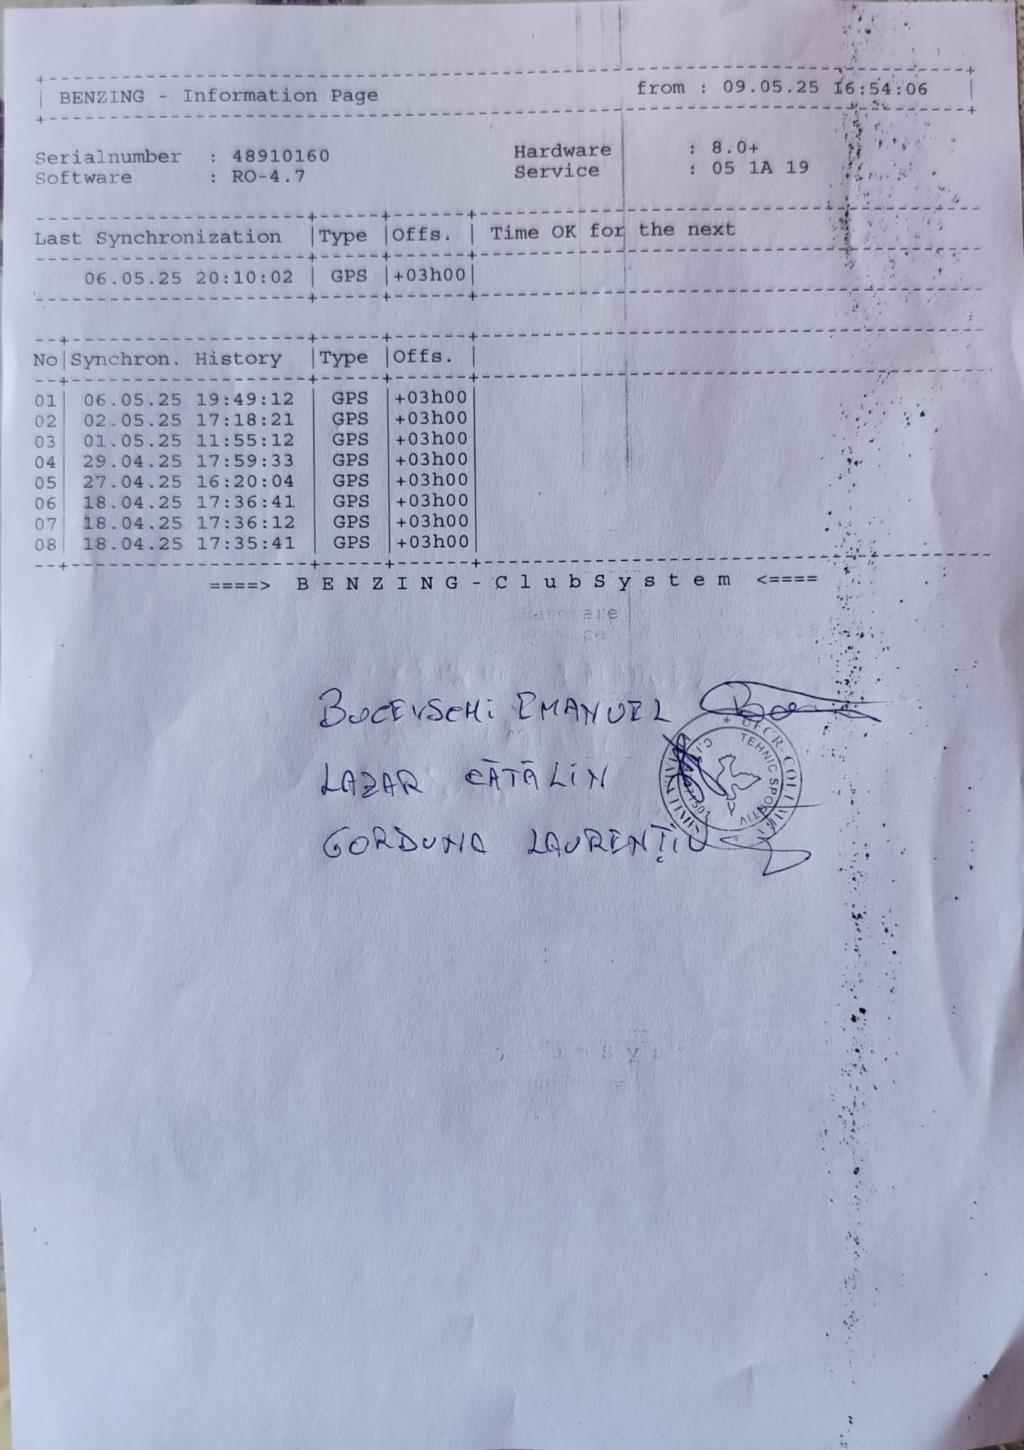 BENZING - Information Page from : 09.05.25 16:54:06
Serialnumber : 48910160 Hardware : 8.0+
Software : RO-4.7 Service : 05 1A 19
Last Synchronization |Type |Offs. | Time OK for the next
06.05.25 20:10:02 | GPS |+03h00|
No|Synchron. History |Type |Offs. |
01| 06.05.25 19:49:12 | GPS |+03h00|
02| 02.05.25 17:18:21 | GPS |+03h00|
03| 01.05.25 11:55:12 | GPS |+03h00|
04| 29.04.25 17:59:33 | GPS |+03h00|
05| 27.04.25 16:20:04 | GPS |+03h00|
06| 18.04.25 17:36:41 | GPS |+03h00|
07| 18.04.25 17:36:12 | GPS |+03h00|
08| 18.04.25 17:35:41 | GPS |+03h00|
====> B E N Z I N G - C l u b S y s t e m <====
EMANUEL
LAZAR CĂTĂLIN
GORDUNA LAURENȚIU
TEHNIC SPORTIV